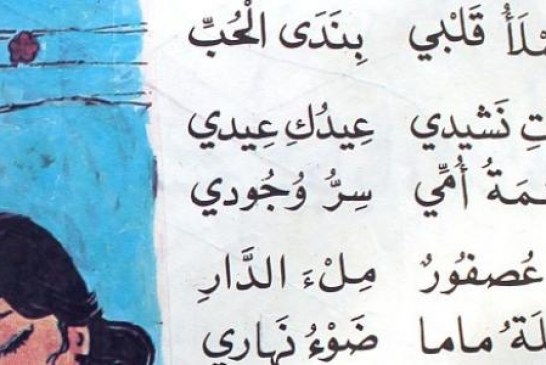 قَلْبي بِنَدَى الْحُبِّ
نَشيدي عِيدُكِ عِيدي
أُمِّي سِرُّ وُجُودي
عُصفُورٌ مِلْءَ الدَّارِ
ماما ضَوْءُ نَهَاري